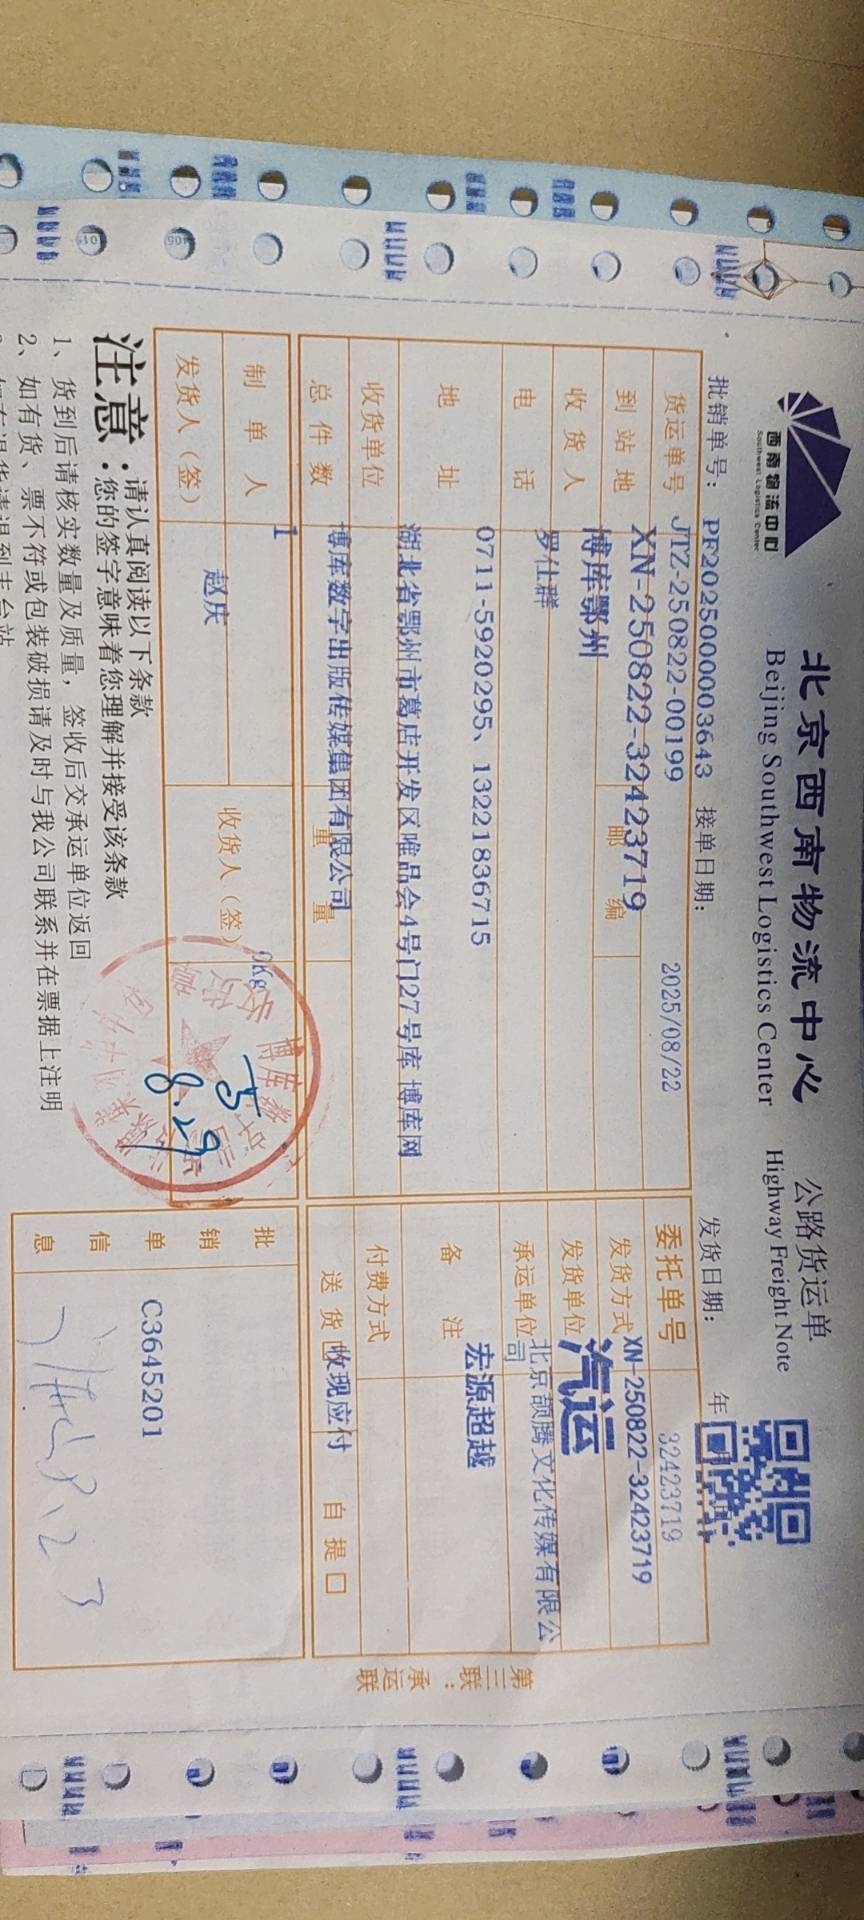 西南物流中心
Southwest Logistics Center
北京西南物流中心 公路货运单
Beijing Southwest Logistics Center Highway Freight Note
批销单号: PF2025000003643 接单日期: 2025/08/22 发货日期: 年
货运单号 JTZ-250822-00199
XN-250822-32423719
委托单号 32423719
到站地 博库鄂州 邮编
发货方式 XN-250822-32423719
汽运
收货人 罗仕群
发货单位 北京颉腾文化传媒有限公司
电话 0711-5920295、13221836715
承运单位 宏源超越
地址 湖北省鄂州市葛店开发区唯品会4号门27号库 博库网
备注
收货单位 博库数字出版传媒集团有限公司
付费方式 收现应付
总件数 1 重量 0kg
送货□ 自提□
制单人 赵庆 收货人(签)
发货人(签)
8.29
批销单信息 C3645201
8.23
第三联:承运联
注意:请认真阅读以下条款
您的签字意味着您理解并接受该条款
1、货到后请核实数量及质量,签收后交承运单位返回
2、如有货、票不符或包装破损请及时与我公司联系并在票据上注明